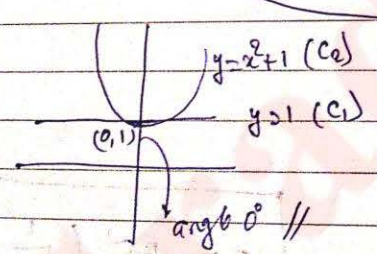 y = x²+1 (C₂)
y = 1 (C₁)
(0,1)
angle 0° //